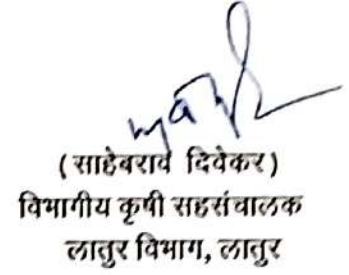 (साहेबराव दिवेकर)
विभागीय कृषी सहसंचालक
लातुर विभाग, लातुर